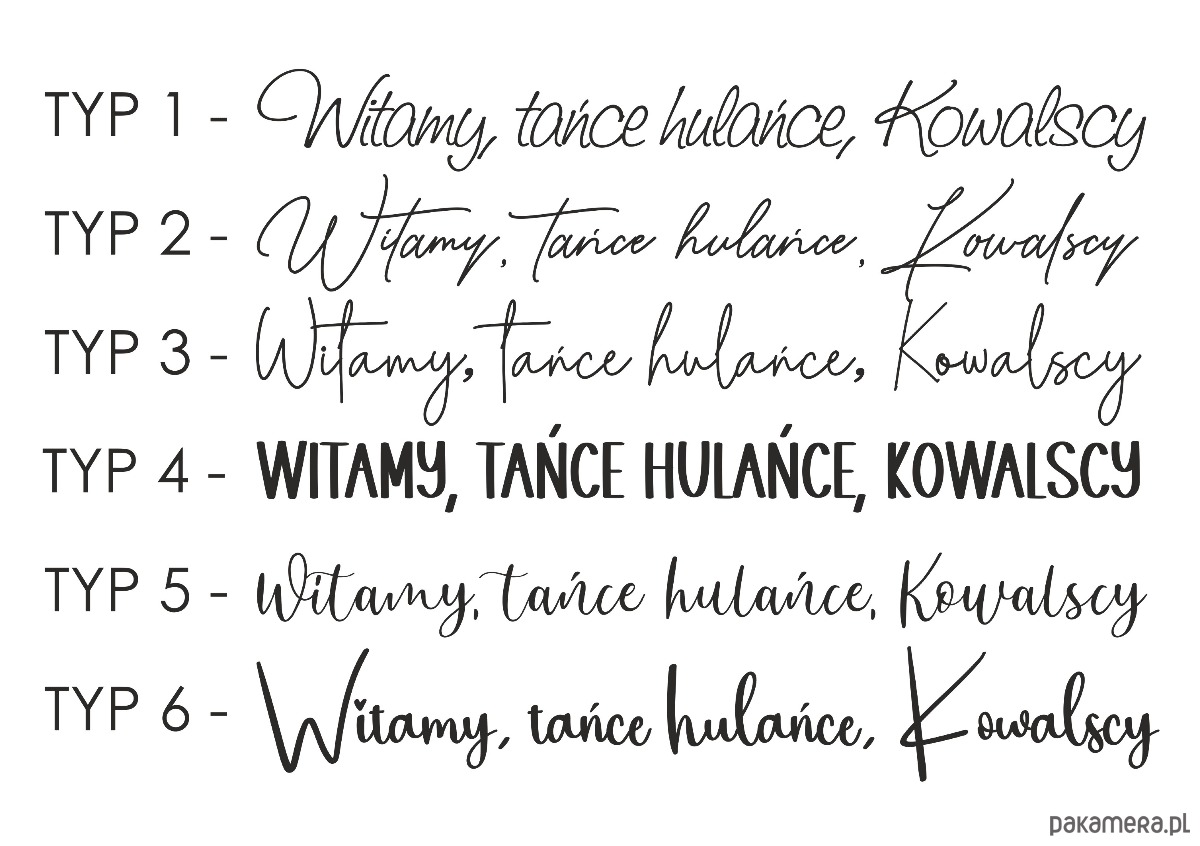 TYP 1 - Witamy, tańce hulańce, Kowalscy
TYP 2 - Witamy, tańce hulańce, Kowalscy
TYP 3 - Witamy, tańce hulańce, Kowalscy
TYP 4 - WITAMY, TAŃCE HULAŃCE, KOWALSCY
TYP 5 - Witamy, tańce hulańce, Kowalscy
TYP 6 - Witamy, tańce hulańce, Kowalscy
pakamera.pl